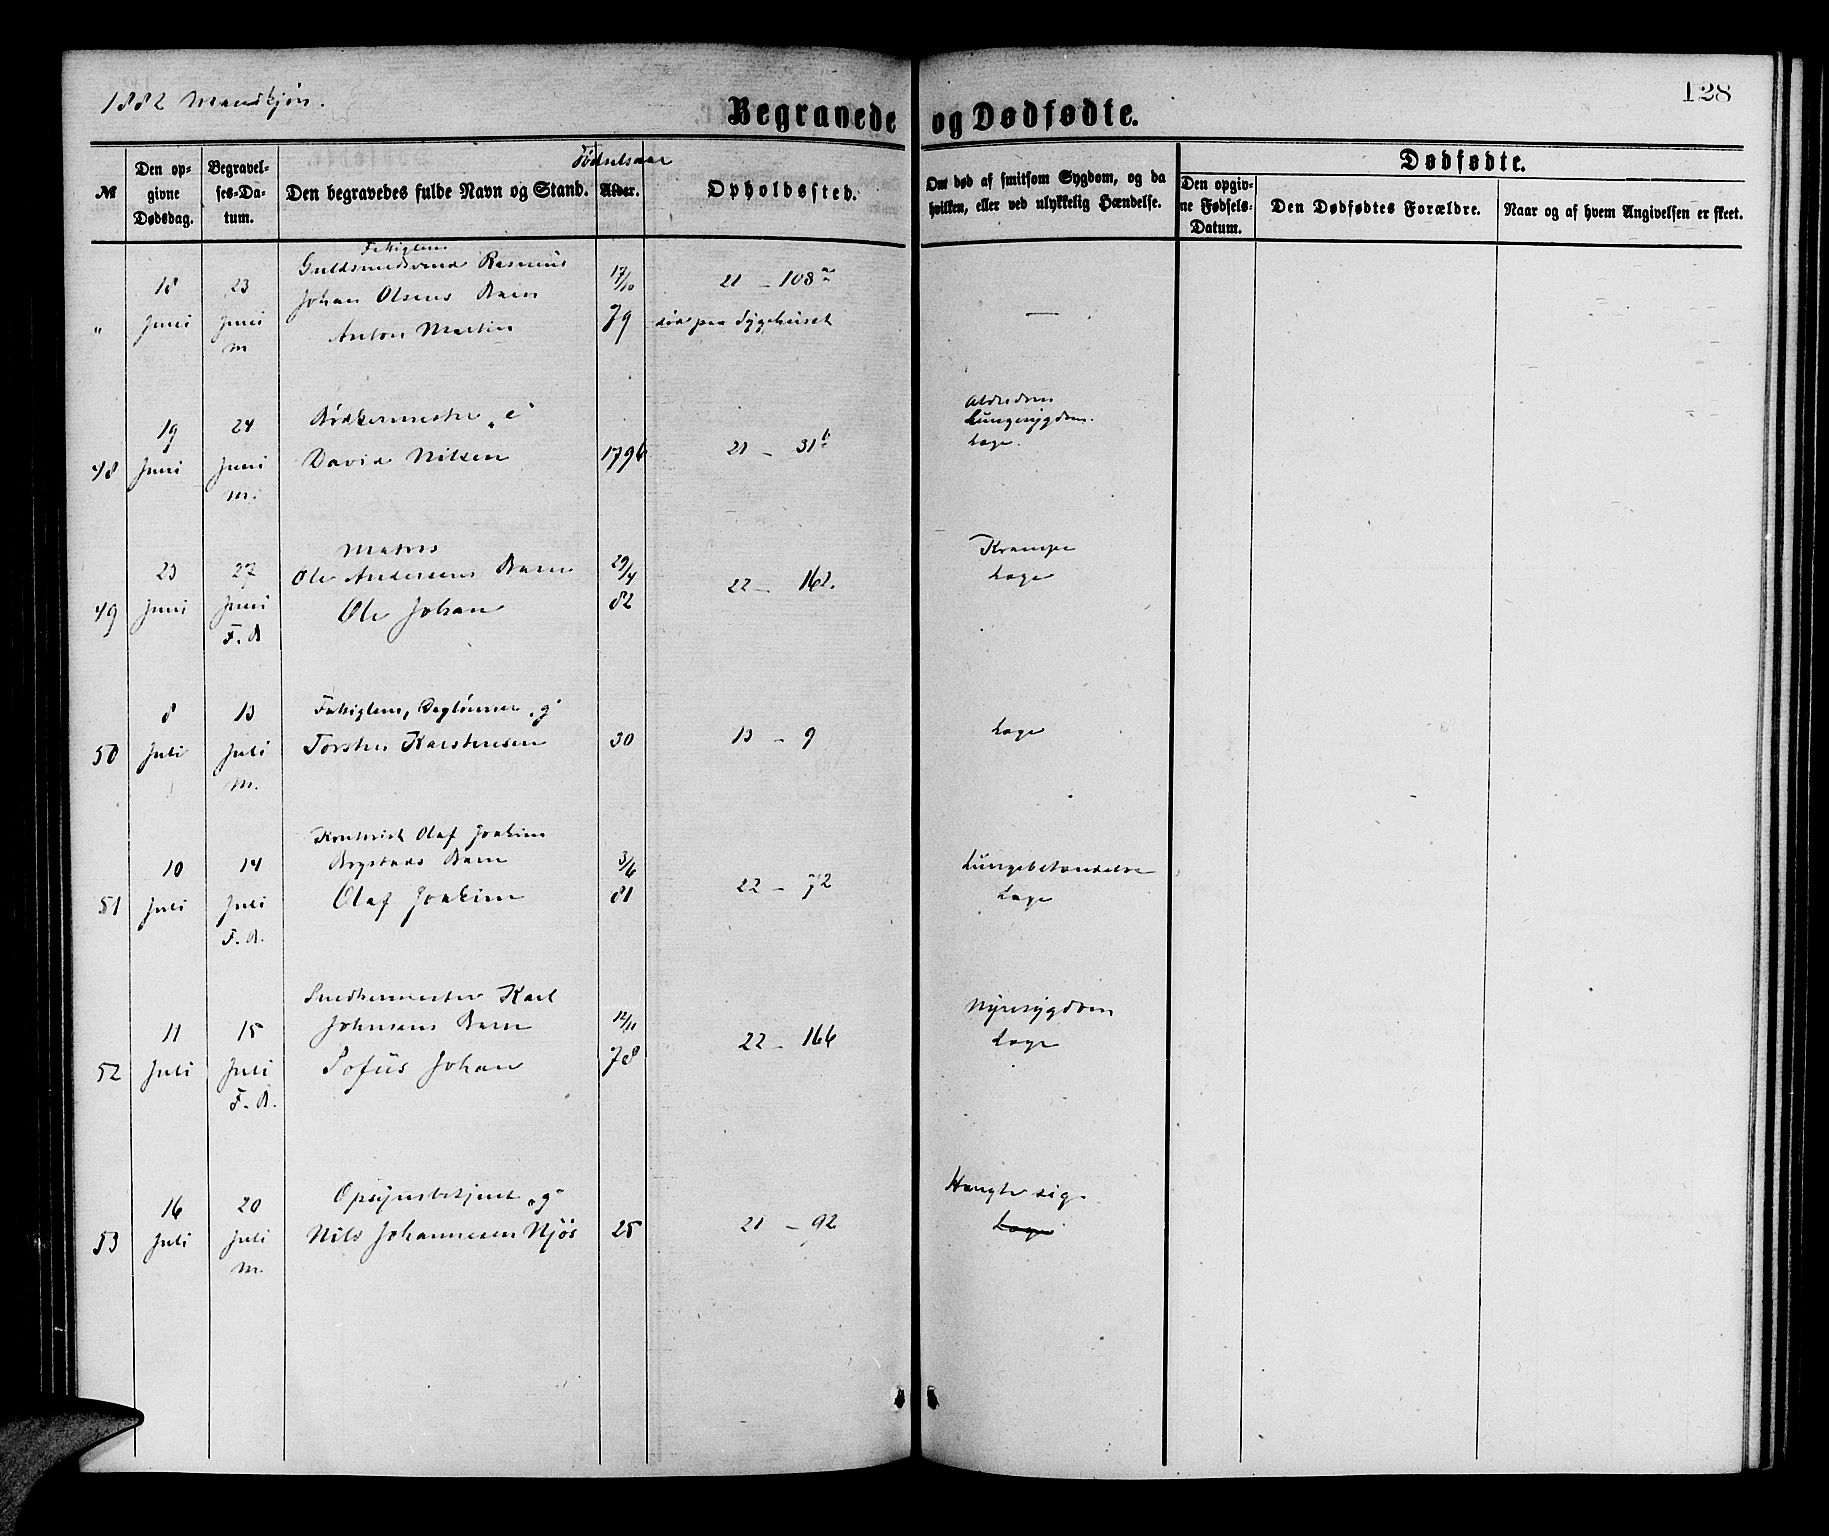 1882 Mandkjøn.
128
Begravede og Dødfødte.
№
Den opgivne Dødsdag.
Begravelses-Datum.
Den begravedes fulde Navn og Stand.
Fødselsaar
Alder.
Opholdssted.
Om død af smitsom Sygdom, og da hvilken, eller ved ulykkelig Hændelse.
Dødfødte.
Den opgivne Fødsels-Datum.
Den Dødfødtes Forældre.
Naar og af hvem Angivelsen er skeet.
"
18 Juni
23 Juni m
Fattiglem
Guldsmedsvend Rasmus
Johan Olsens Barn
Anton Martin
17/10 79
21 - 108 a
død paa Sygehuset
—
48
19 Juni
24 Juni m.
Bødkermester „e"
David Nilsen
1796
21 - 31 b
Alderdom
Lungesygdom.
Læge.
49
23 Juni
27 Juni F. B
Matros
Ole Andersens Barn
Ole Johan
29/4 82
22 - 162.
Krampe
Læge
50
8 Juli
13 Juli m.
Fattiglem, Daglønner „g"
Torsten Karstensen
30
13 - 9
Læge
51
10 Juli
14 Juli F. B.
Kontorist Olaf Joakim
Brystads Barn
Olaf Joakim
3/6 81
22 - 72
Lungebetændelse
Læge
52
11 Juli
15 Juli F. B.
Snedkermester Karl
Johnsens Barn
Tofus Johan
12/11 78
22 - 166
Nyresygdom
Læge
53
16 Juli
20 Juli m.
Opsynsbetjent „g"
Nils Johannesen Njøs
25
21 - 92
Hængte sig.
Læge